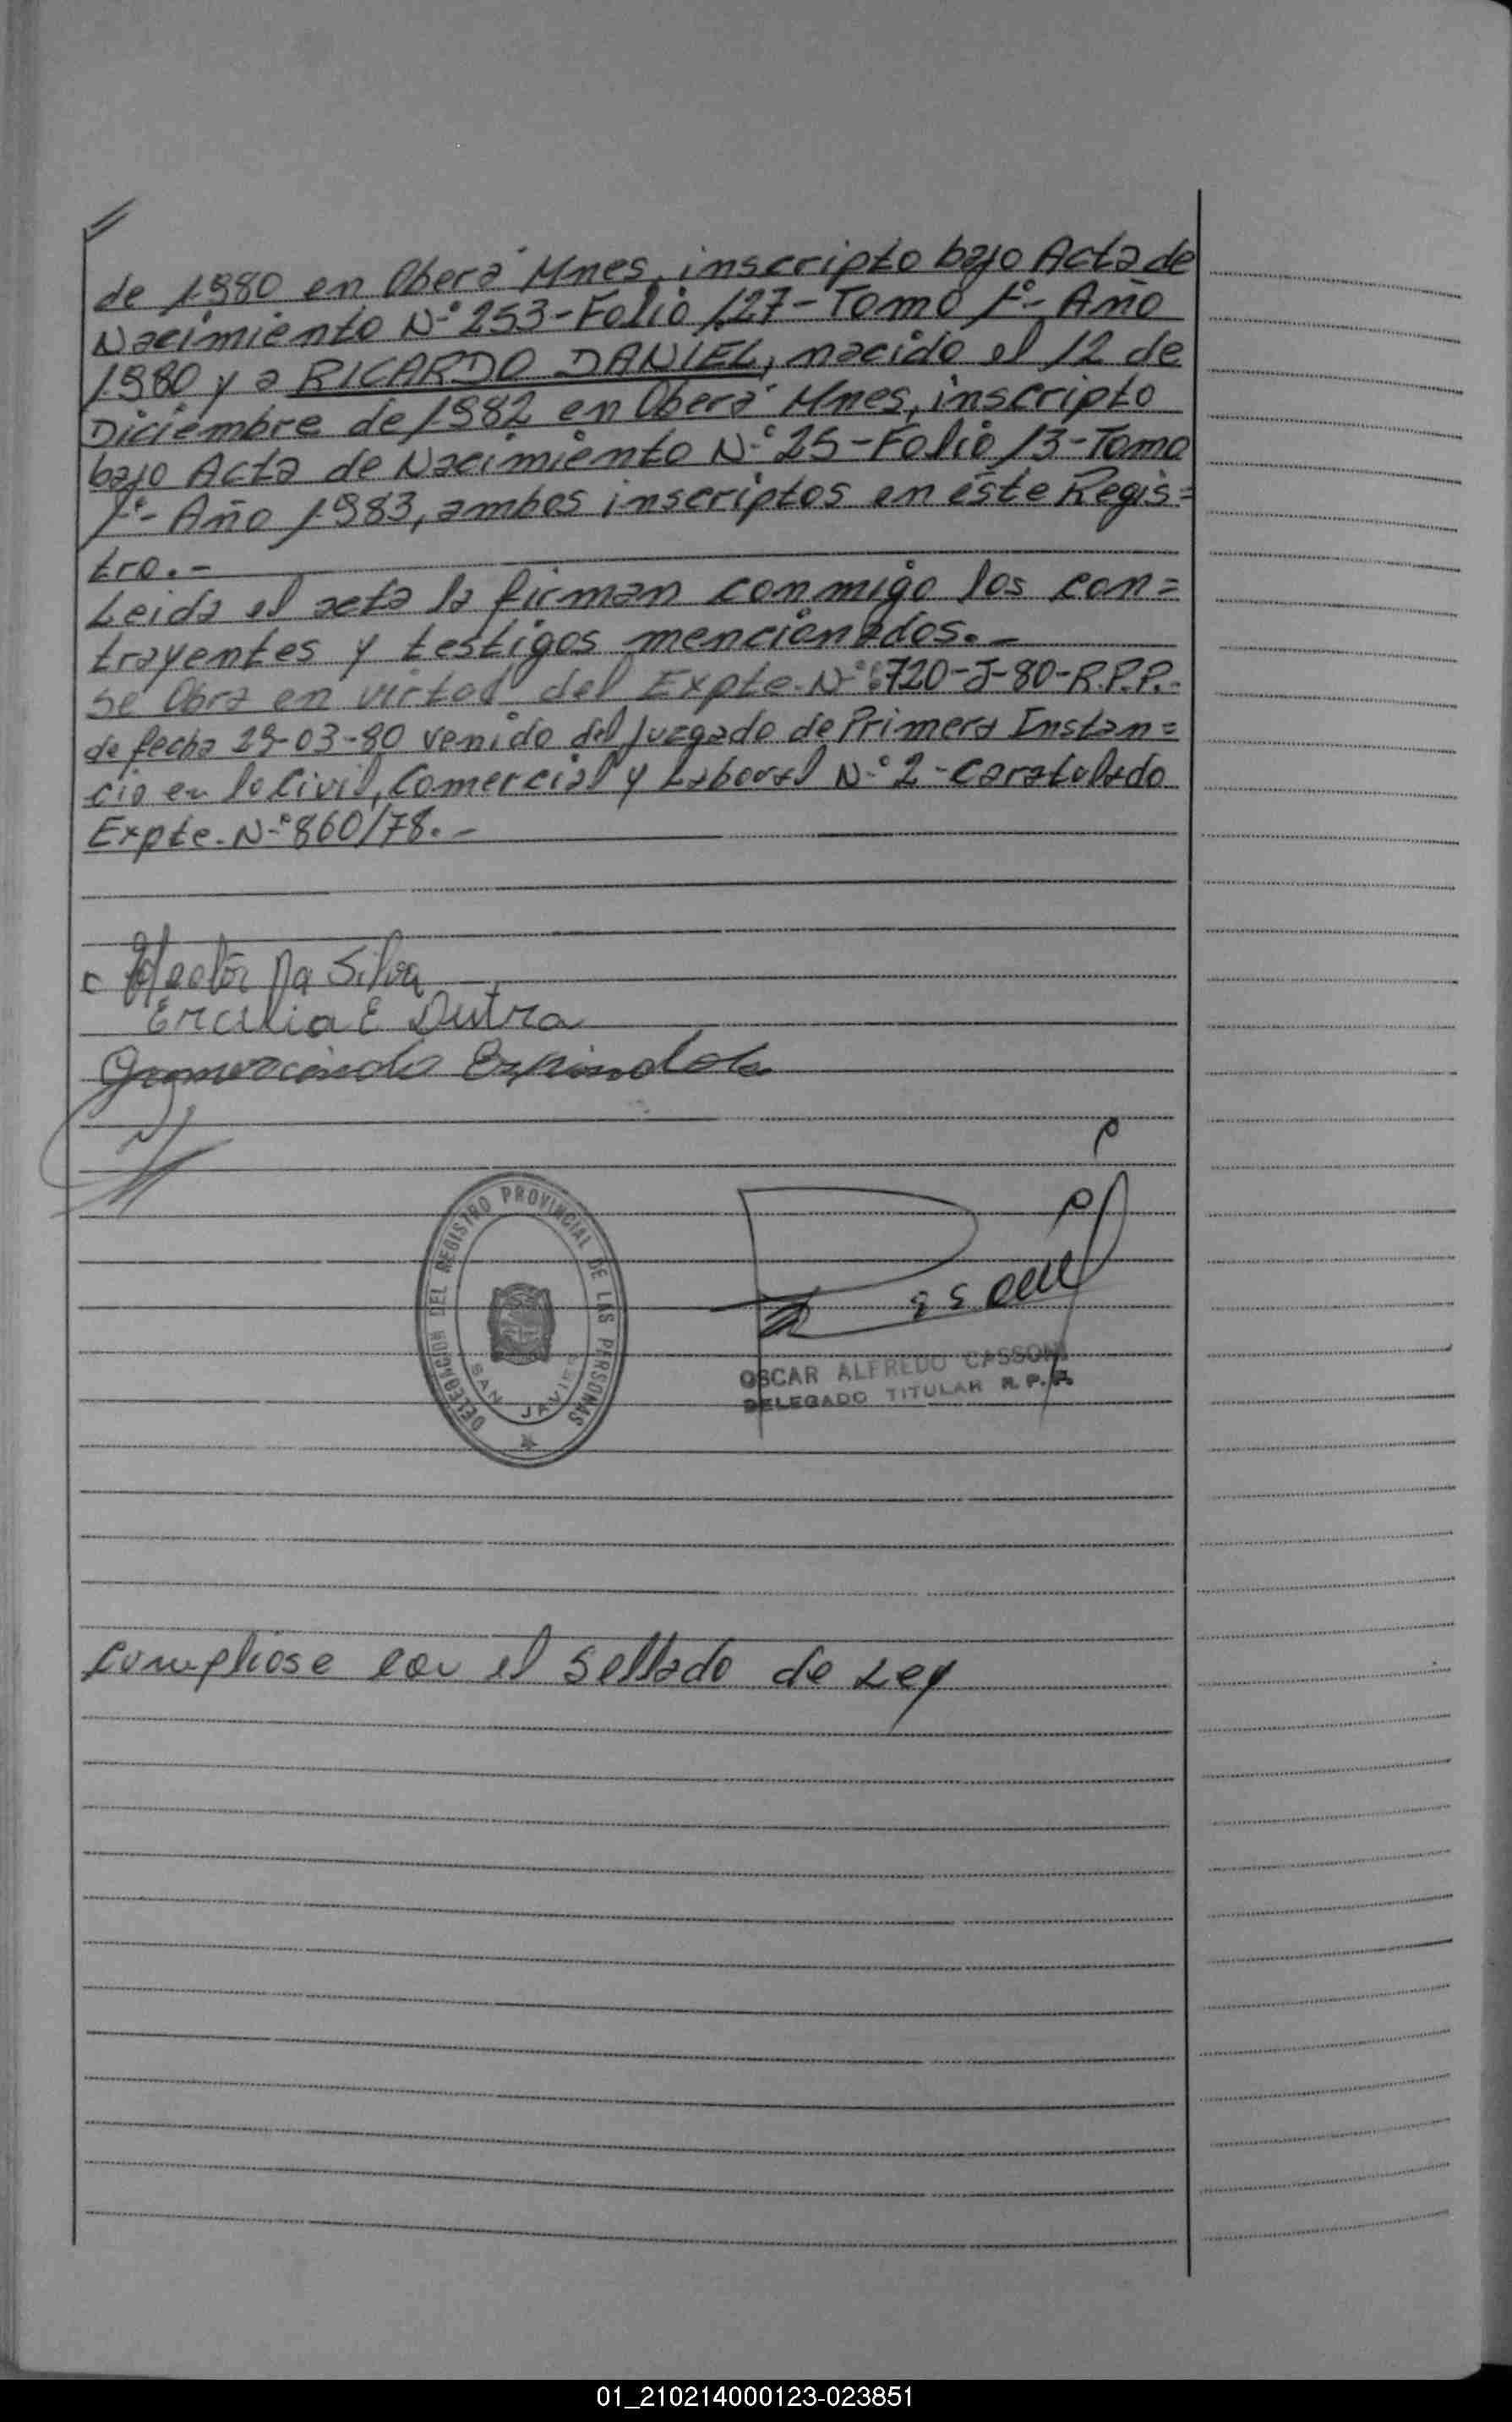 de 1980 en Oberá Mnes, inscripto bajo Acta de
Nacimiento N° 253-Folio 127-Tomo 1°- Año
1980 y a RICARDO DANIEL, nacido el 12 de
Diciembre de 1982 en Oberá Mnes, inscripto
bajo Acta de Nacimiento N° 25-Folio 13-Tomo
1°- Año 1983, ambos inscriptos en éste Regis=
tro.-
Leida el acta la firman conmigo los con=
trayentes y testigos mencionados.-
Se Obra en virtud del Expte. N° 6720-J-80-R.P.P.-
de fecha 29-03-80 venido del Juzgado de Primera Instan=
cia en lo Civil, Comercial y Laboral N° 2-Caratulado
Expte. N° 860/78.-
Hector Da Silva
Ercilia E Dutra
Gumercindo Espindola
DELEGACION DEL REGISTRO PROVINCIAL DE LAS PERSONAS
SAN JAVIER
OSCAR ALFREDO CASSONI
DELEGADO TITULAR R.P.P.
Cumpliose con el Sellado de Ley
01_210214000123-023851